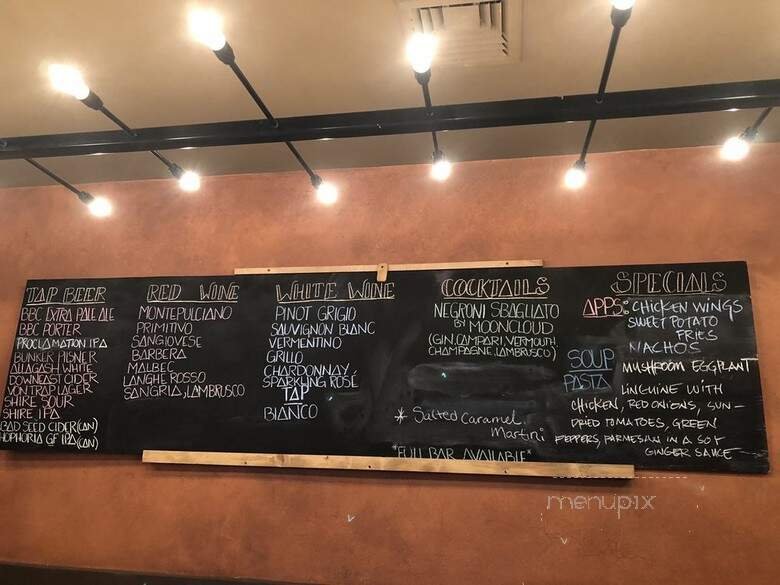 TAP BEER
BBC EXTRA PALE ALE
BBC PORTER
PROCLAMATION IPA
BUNKER PILSNER
ALLAGASH WHITE
DOWNEAST CIDER
VON TRAP LAGER
SHIRE SOUR
SHIRE IPA
BAD SEED CIDER (CAN)
HOPHORIA GF IPA (CAN)
RED WINE
MONTEPULCIANO
PRIMITIVO
SANGIOVESE
BARBERA
MALBEC
LANGHE ROSSO
SANGRIA, LAMBRUSCO
WHITE WINE
PINOT GRIGIO
SAUVIGNON BLANC
VERMENTINO
GRILLO
CHARDONNAY
SPARKLING ROSÉ
TAP
BIANCO
COCKTAILS
NEGRONI SBAGLIATO
BY MOONCLOUD
(GIN, CAMPARI, VERMOUTH,
CHAMPAGNE, LAMBRUSCO)
* Salted Caramel
Martini
*FULL BAR AVAILABLE*
SPECIALS
APPS: CHICKEN WINGS
SWEET POTATO
FRIES
NACHOS
SOUP MUSHROOM EGGPLANT
PASTA LINGUINE WITH
CHICKEN, RED ONIONS, SUN-
DRIED TOMATOES, GREEN
PEPPERS, PARMESAN IN A SOY
GINGER SAUCE
menupix